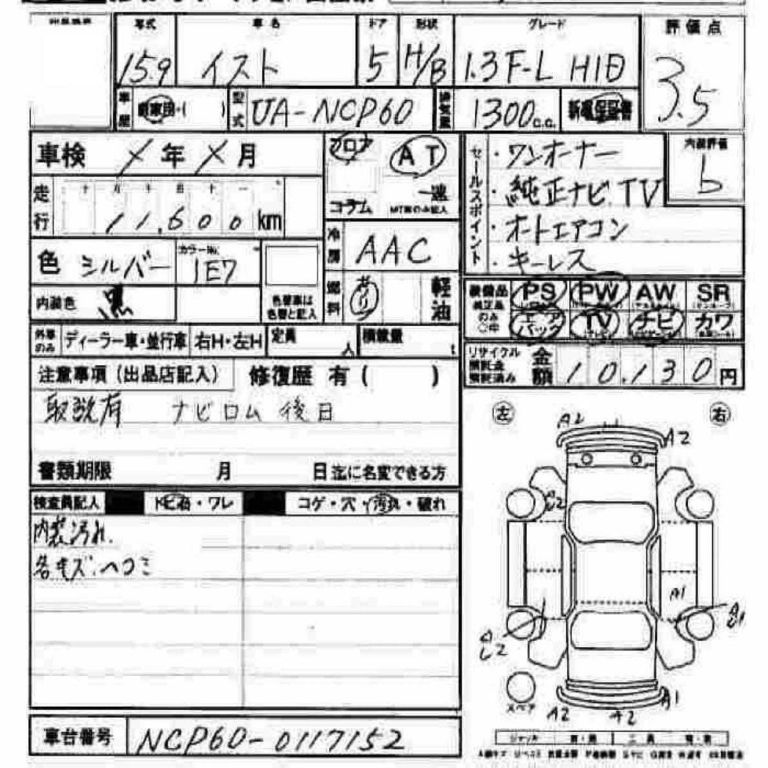 年式 車名 ドア 形状 グレード 評価点
15.9 イスト 5 H/B 1.3F-L HID 3.5
車歴 自家用・( ) 型式 UA-NCP60 排気量 1300c.c. 新車保証書
車検 ×年×月 フロア AT
コラム 速
走行 11,600km
冷房 AAC
セールスポイント ・ワンオーナー
・純正ナビ TV
・オートエアコン
・キーレス
内装評価 b
色 シルバー カラーNo. 1E7
内装色 黒 色替車は
色替と記入
燃料 ガソリン 軽油
装備品 純正品のみ○印 PS PW AW SR
エアバック TV ナビ カワ
外車のみ ディーラー車・並行車 右H・左H 定員 人 積載量 t
リサイクル預託金預託済み 金額 10,130円
注意事項(出品店記入) 修復歴 有( )
取説有 ナビロム後日
書類期限 月 日迄に名変できる方
検査員記入 トビ石・ワレ コゲ・穴・汚れ・破れ
内装汚れ.
各キズ.ヘコミ
左 右
A2 A2
A1
スペア
A2 A2 A1
車台番号 NCP60-0117152
ジャッキ 工具